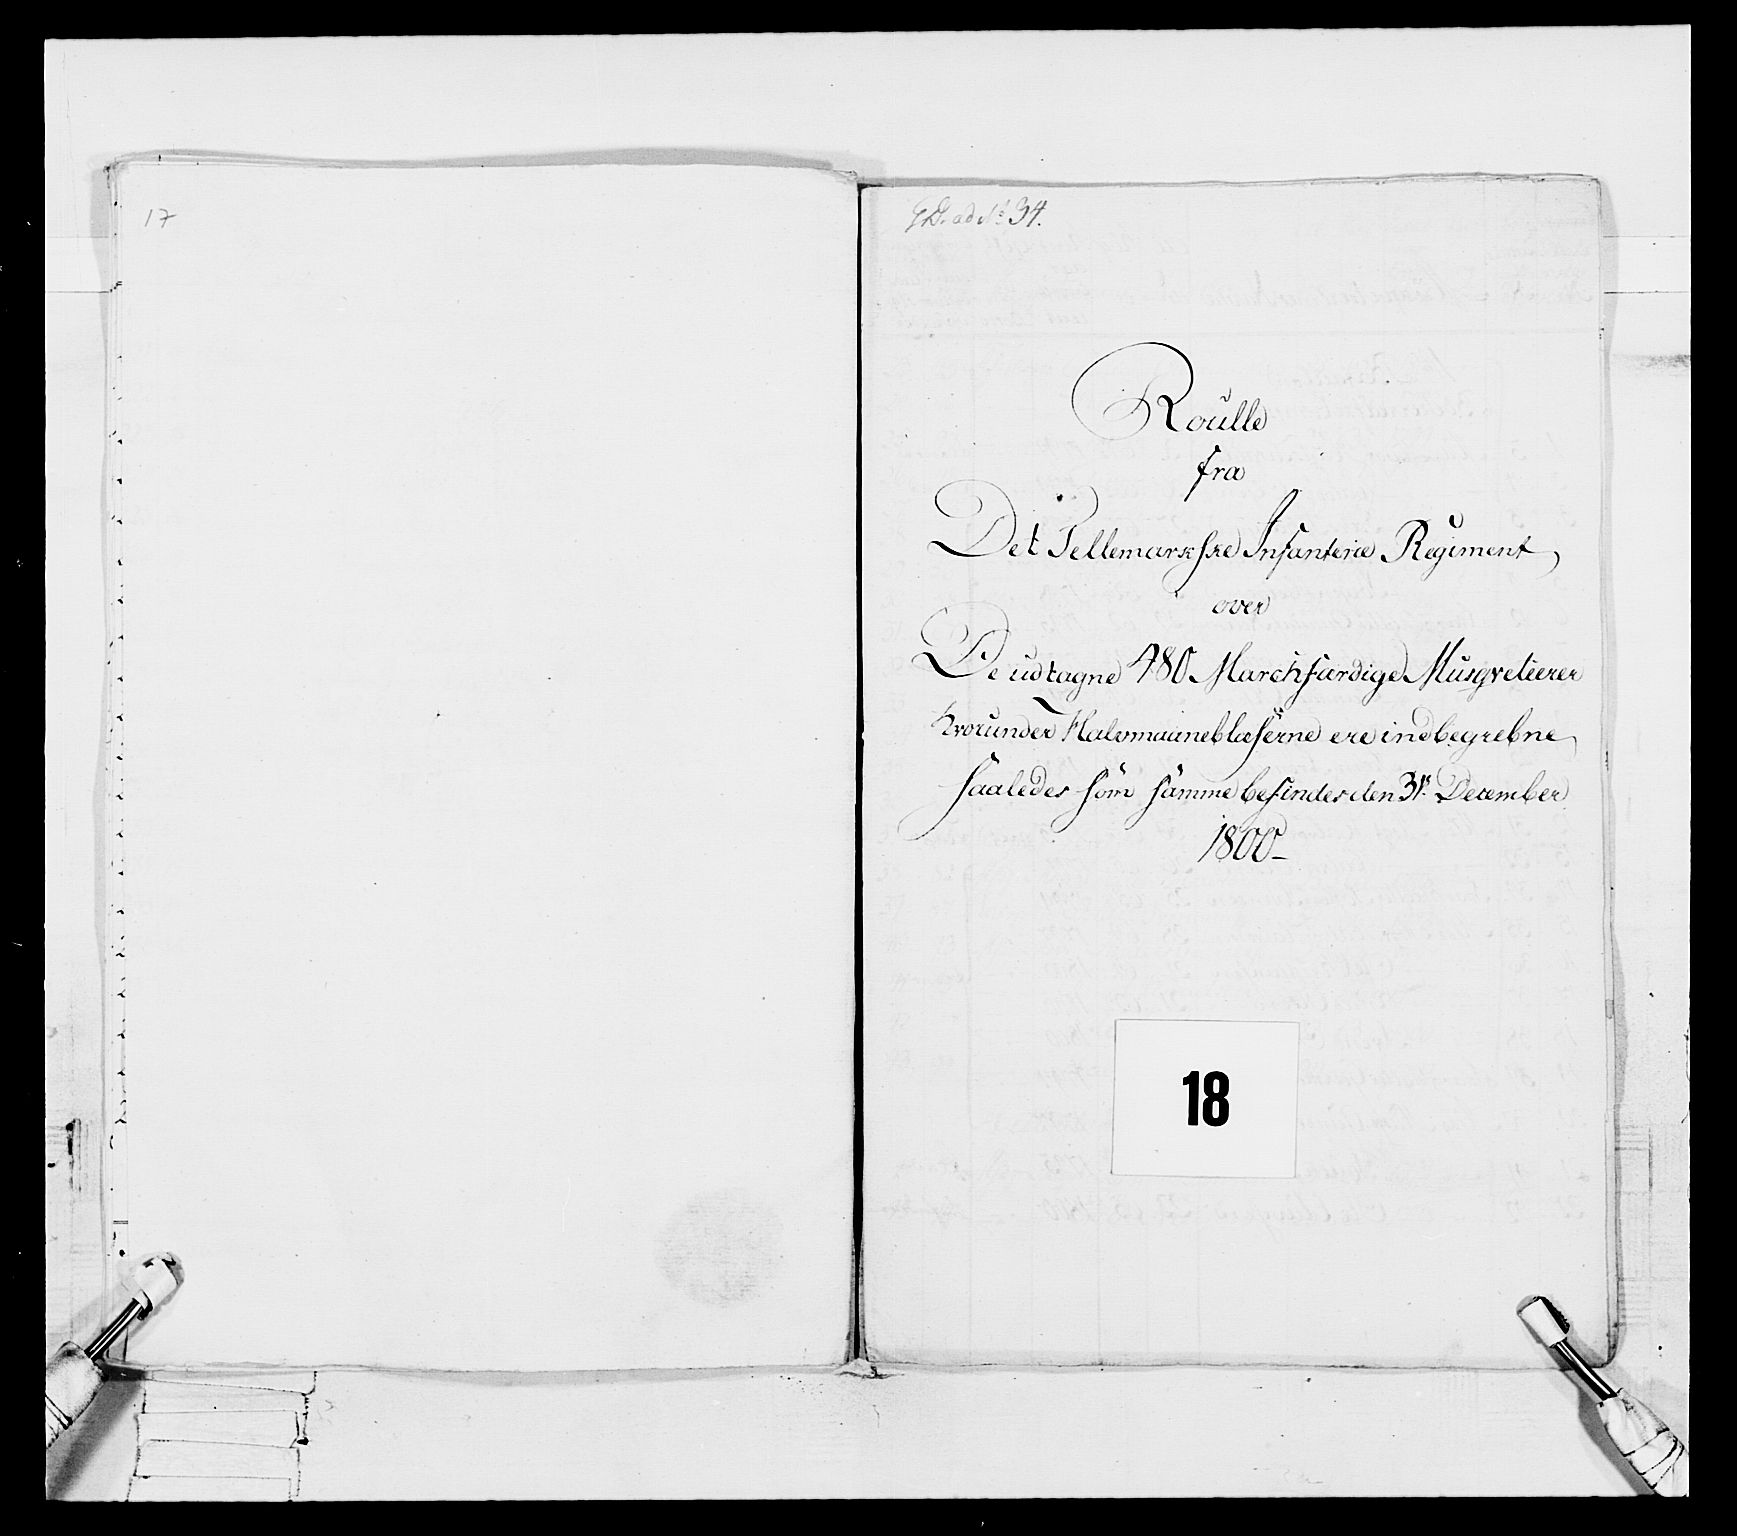 17
ad No 34.
Roulle
fra
Det Tellemarkske Infanterie Regiment
over
De udtagne 480 Marchfærdige Musqveteerer
hvorunder Halvmaaneblæserne ere indbegrebne
saaledes som samme befindes den 31te December
1800
18